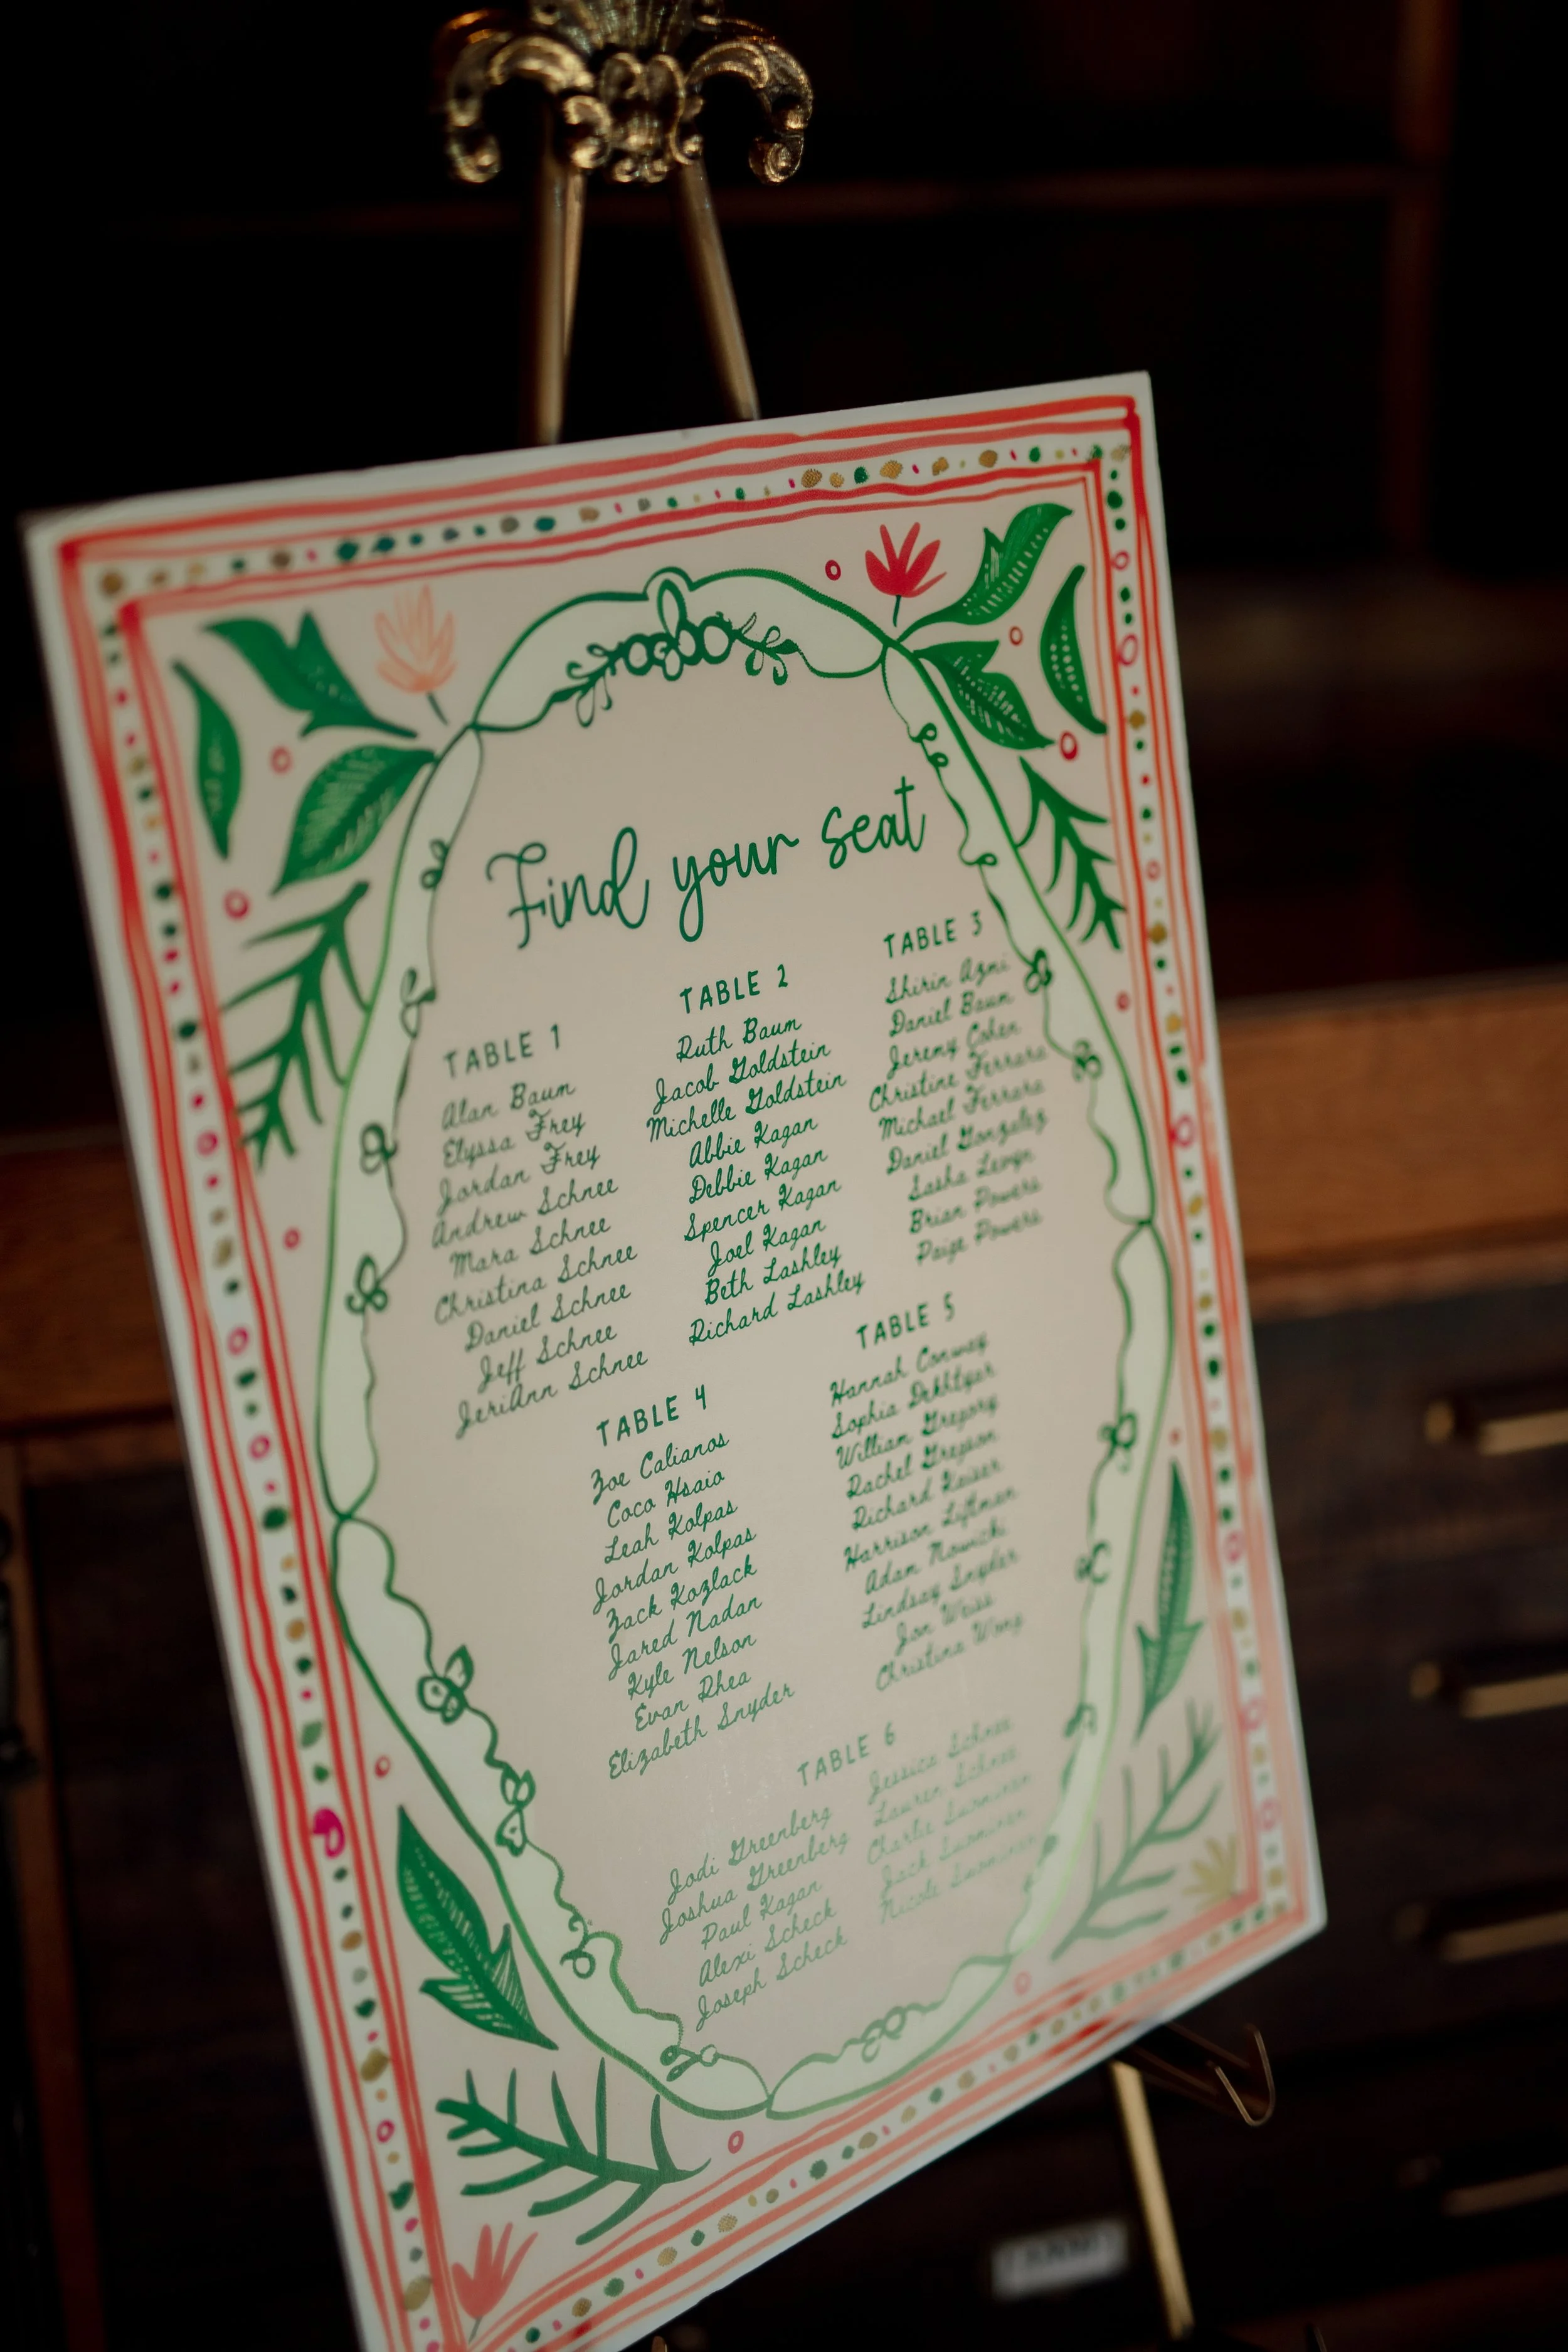 Find your seat
TABLE 1
Alan Baum
Elyssa Frey
Jordan Frey
Andrew Schnee
Mara Schnee
Christina Schnee
Daniel Schnee
Jeff Schnee
JeriAnn Schnee
TABLE 2
Ruth Baum
Jacob Goldstein
Michelle Goldstein
Abbie Kagan
Debbie Kagan
Spencer Kagan
Joel Kagan
Beth Lashley
Richard Lashley
TABLE 3
Shirin Azmi
Daniel Baum
Jeremy Cohen
Christine Ferrara
Michael Ferrara
Daniel Gonzalez
Sasha Levyn
Brian Powers
Paige Powers
TABLE 4
Zoe Calianos
Coco Hsaio
Leah Kolpas
Jordan Kolpas
Zack Kozlack
Jared Nadan
Kyle Nelson
Evan Rhea
Elizabeth Snyder
TABLE 5
Hannah Conway
Sophia
William Gregory
Rachel Gregson
Richard Kaiser
Harrison Liftman
Adam Nowicki
Lindsay Snyder
Jon Weiss
Christina Wong
TABLE 6
Jodi Greenberg
Joshua Greenberg
Paul Kagan
Alexi Scheck
Joseph Scheck
Jessica Schnee
Lauren Schnee
Charlie
Jack
Nicole